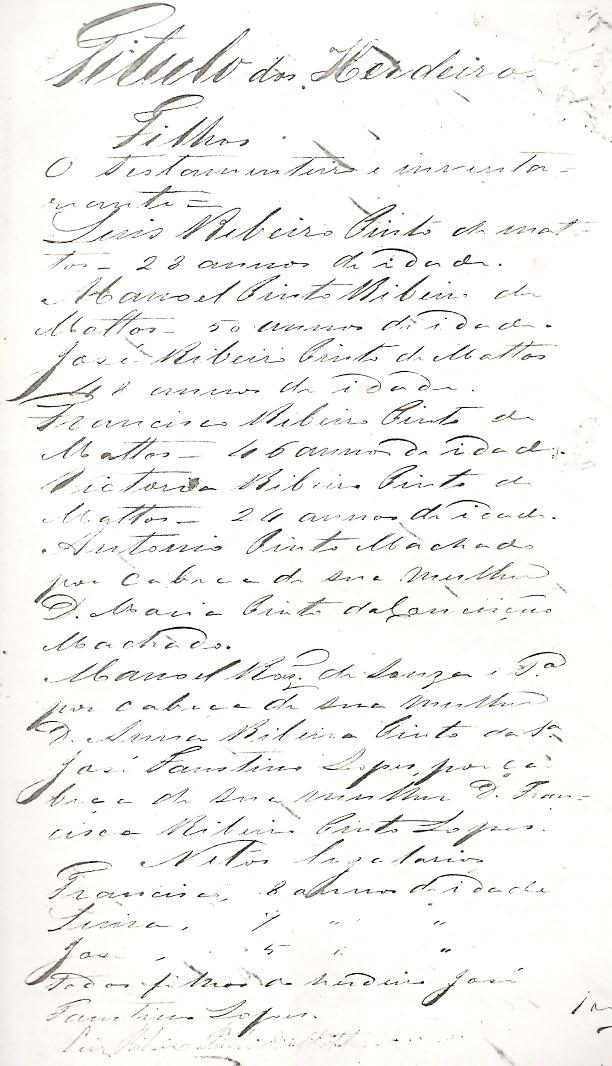 Titulo dos Herdeiros
Filhos
O Testamenteiro e inventa-
riante =
Luis Ribeiro Pinto de Mat-
tos - 23 annos de idade.
Manoel Pinto Ribeiro de
Mattos - 50 annos de idade.
José Ribeiro Pinto de Mattos
48 annos de idade.
Francisco Ribeiro Pinto de
Mattos - 46 annos de idade.
Victoria Ribeiro Pinto de
Mattos - 24 annos de idade.
Antonio Pinto Machado
por cabeca de sua mulher
D. Maria Pinto da Conceição
Machado.
Manoel Roz. de Souza e Sa.
por cabeca de sua mulher
D. Anna Ribeira Pinto da Sa.
José Faustino Lopes, por ca
beca de sua mulher D. Fran-
cisca Ribeiro Pinto Lopes.
Netos legatarios
Francisca, 8 annos de idade
7 " "
José, 5 " "
Todos filhos do herdeiro José
Faustino Lopes.
Luis Ribeiro Pinto de Mattos